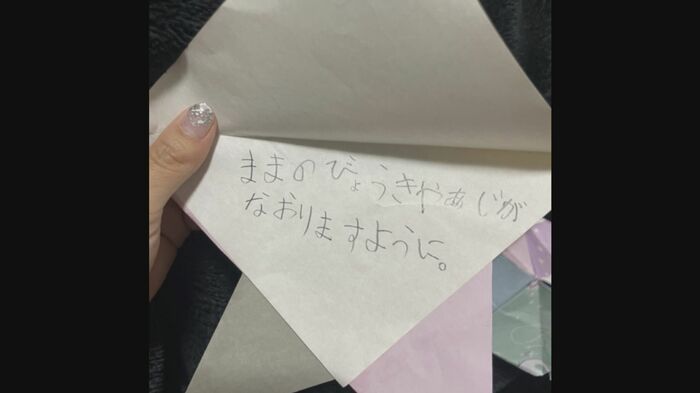 ままのびょうきやぁじが
なおりますように。